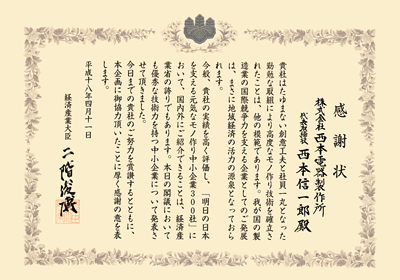 感謝状
株式会社西本電器製作所
代表取締役 西本信一郎殿
貴社はたゆまない創意工夫と社員一丸となった
勤勉な取組により高度なモノ作り技術を確立さ
れたことは、他の模範であります。我が国の製
造業の国際競争力を支える企業としてのご発展
は、まさに地域経済の活力の源泉となっておら
れます。
今般、貴社の実績を高く評価し、「明日の日本
を支える元気なモノ作り中小企業300社」に
おいて、国内外にご紹介できることは、経済産
業省の誇りでもあります。本日の閣議において
も優秀な技術力を持つ中小企業について発表さ
せて頂きました。
今日までの貴社のご努力を賞讃するとともに、
本企画に御協力頂いたことに厚く感謝の意を表
します。
平成十八年四月十一日
経済産業大臣
二階俊博